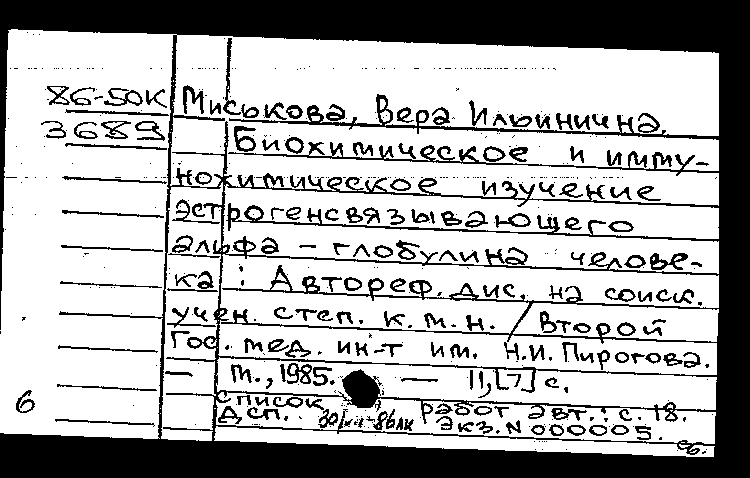 86-50К Миськова, Вера Ильинична.
3689 Биохимическое и имму-
нохимическое изучение
эстрогенсвязывающего
альфа - глобулина челове-
ка : Автореф. дис. на соиск.
учен. степ. к.м.н. / Второй
Гос. мед. ин-т им. Н.И. Пирогова.
— М., 1985. — 11, [7] с.
Список работ авт.: с. 18.
6 Дсп. Экз. N 000005.